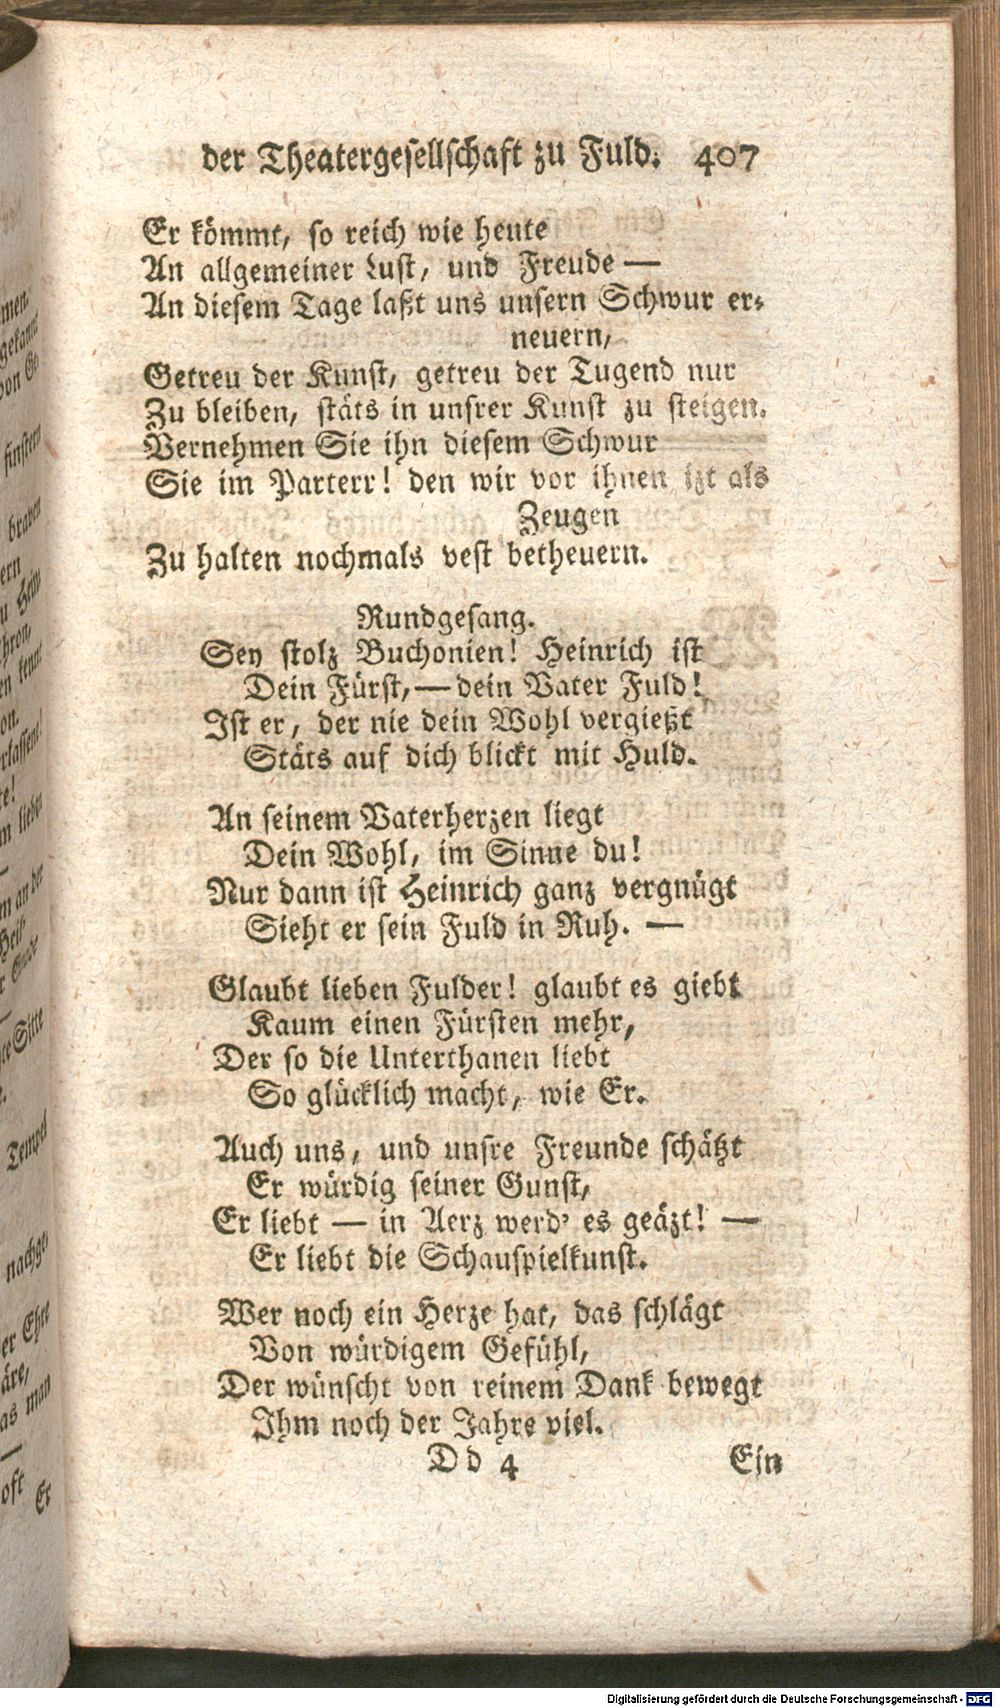 der Theatergesellschaft zu Fuld. 407
Er kömmt, so reich wie heute
An allgemeiner Lust, und Freude —
An diesem Tage laßt uns unsern Schwur er-
neuern,
Getreu der Kunst, getreu der Tugend nur
Zu bleiben, stäts in unsrer Kunst zu steigen.
Vernehmen Sie ihn diesem Schwur
Sie im Parterr! den wir vor ihnen izt als
Zeugen
Zu halten nochmals vest betheuern.
Rundgesang.
Sey stolz Buchonien! Heinrich ist
Dein Fürst, — dein Vater Fuld!
Ist er, der nie dein Wohl vergießt
Stäts auf dich blickt mit Huld.
An seinem Vaterherzen liegt
Dein Wohl, im Sinne du!
Nur dann ist Heinrich ganz vergnügt
Sieht er sein Fuld in Ruh. —
Glaubt lieben Fulder! glaubt es giebt
Kaum einen Fürsten mehr,
Der so die Unterthanen liebt
So glücklich macht, wie Er.
Auch uns, und unsre Freunde schätzt
Er würdig seiner Gunst,
Er liebt — in Aerz werd' es geäzt! —
Er liebt die Schauspielkunst.
Wer noch ein Herze hat, das schlägt
Von würdigem Gefühl,
Der wünscht von reinem Dank bewegt
Ihm noch der Jahre viel.
Dd 4 Ein
Digitalisierung gefördert durch die Deutsche Forschungsgemeinschaft - DFG